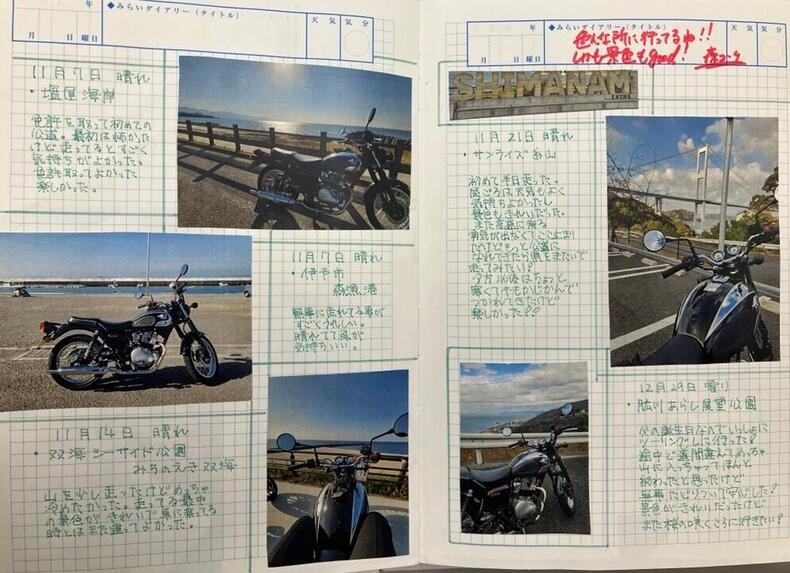 年
月 日 曜日
◆みらいダイアリー(タイトル)
天気
気分
11月7日 晴れ
・塩屋海岸
免許を取って初めての
公道。最初は怖かった
けど走ってるとすごく
気持ちがよかった。
免許取ってよかった
楽しかった。
11月7日 晴れ
・伊予市
森漁港
無事に走れてる事が
すごくうれしい。
晴れてて風が
気持ちいい。
11月14日 晴れ
・双海シーサイド公園
みちのえき双海
山を少し走ったけどめっちゃ
冷めたかった。走ってる最中
の景色がきれいで車に乗ってる
時とはまた違ってよかった。
年
月 日 曜日
◆みらいダイアリー(タイトル)
天気
気分
色んな所に行ってる中!!
しかも景色もgood!
SHIMANAMI
EHIME
11月21日 晴れ
・サンライズ糸山
初めて半日走った。
昼ごろは天気もよく
気持ちよかったし
景色もきれいだった。
まだ高速に乗る
勇気が出なくてここ止まり
だけどもっと公道に
なれてきたら県をまたいで
走ってみたい!
夕方以後はちょっと
寒くて手もかじかんで
つかれてきたけど
楽しかった!!
12月29日 曇り
・肱川あらし展望公園
父の誕生日なのでいっしょに
ツーリングしに行った!
途中で道間違えてめっちゃ
山に入っちゃってほんと
終わったと思ったけど
無事たどりついて安心した!
景色がきれいだったけど
また桜の咲くころに行きたい!